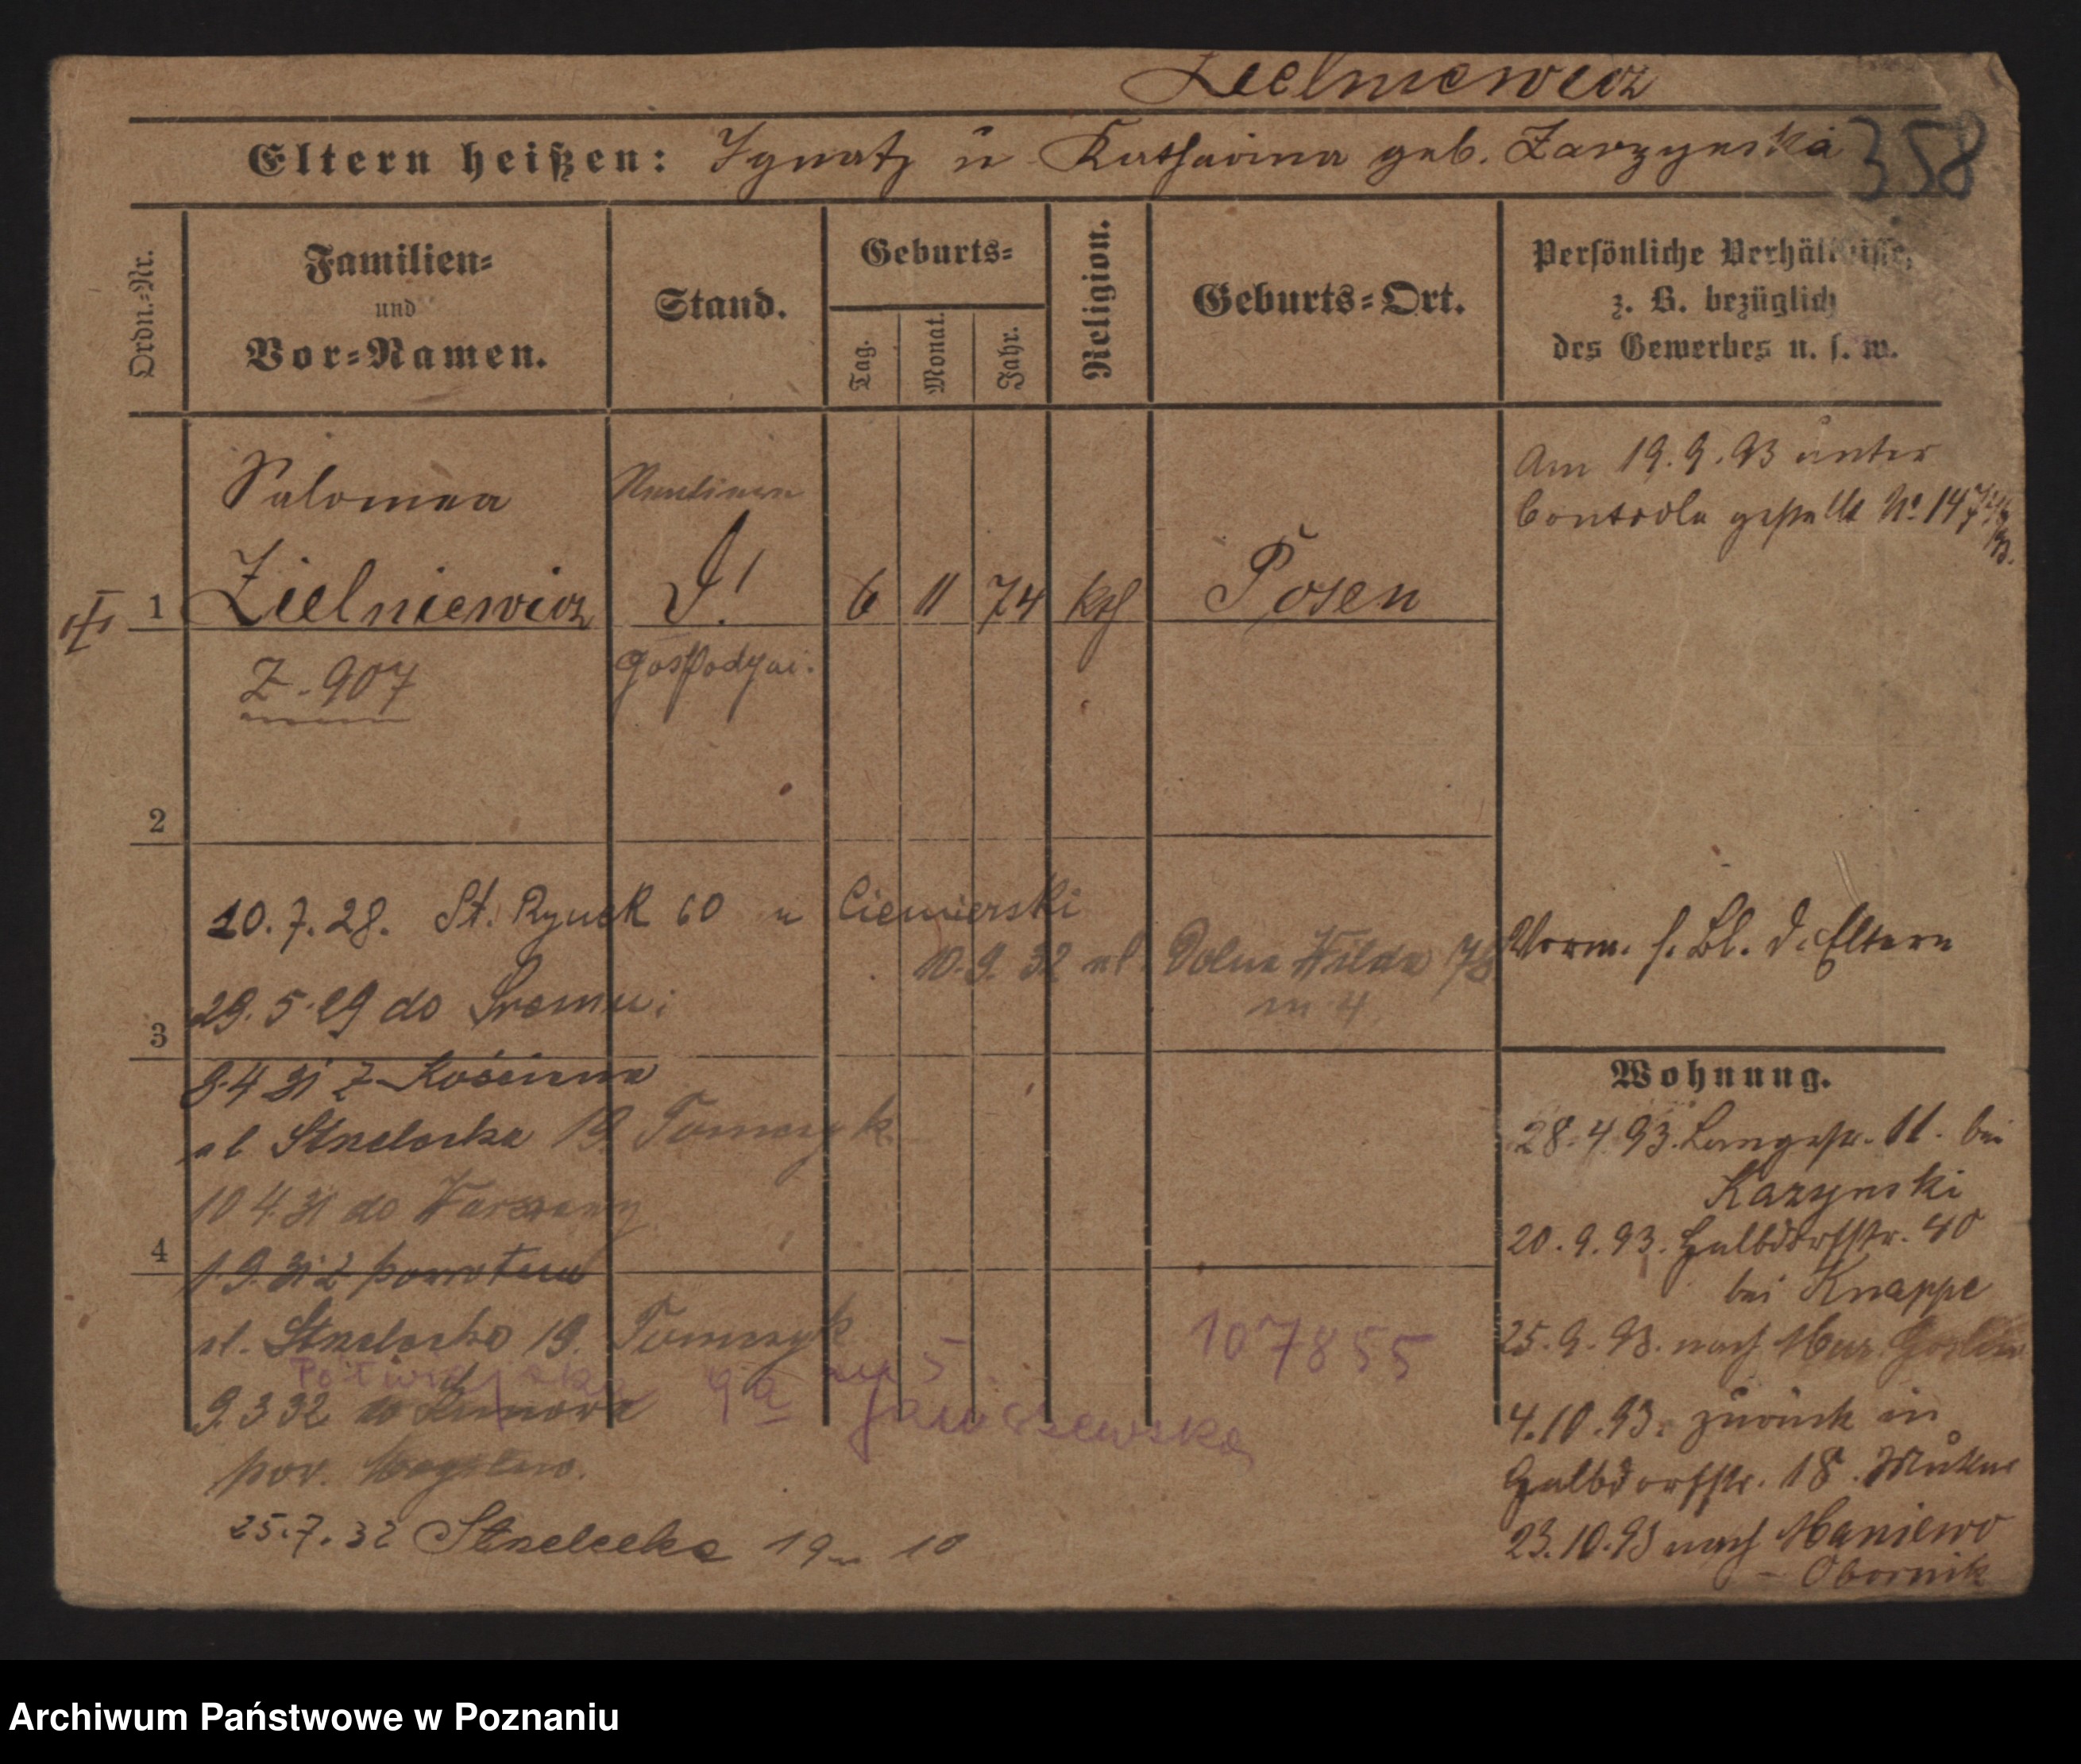 Zielniewicz
Eltern heißen: Ignatz u Katharina geb. Zarzynska
358
Ordn.=Nr.
Familien=
und
Vor=Namen.
Stand.
Geburts=
Tag.
Monat.
Jahr.
Religion.
Geburts=Ort.
Persönliche Verhältnisse,
z. B. bezüglich
des Gewerbes u. s. w.
Salomea
1 Zielniewicz 6 11 74 kth Posen
Z-907
Am 19.9.93 unter
Controle gestellt No. 147
2
10.7.28. St. Rynek 60 u Ciemierski
10.9.32 ul. Dolna Wilda 78
m 4
Vorm. s. Bl. d. Eltern
3
29.5.29 do Śremu
8.4 31 z
ul Strzelecka 19 Tomczyk
10 4.31 do Warszawy
4
1.9.31 z powrotem
ul. Strzelecka 19. Tomczyk
107855
9a
9.3 32
pow.
25.7.32 Strzelecka 19 m 10
Wohnung.
28.4.93. Langestr. 11. bei
20.9.93. Halbdorfstr. 40
bei Knappe
25.9.93. nach Mur. Goslin
4.10.93. zurück in
Halbdorfstr. 18.
23.10.93 nach Maniewo
- Obornik
Archiwum Państwowe w Poznaniu